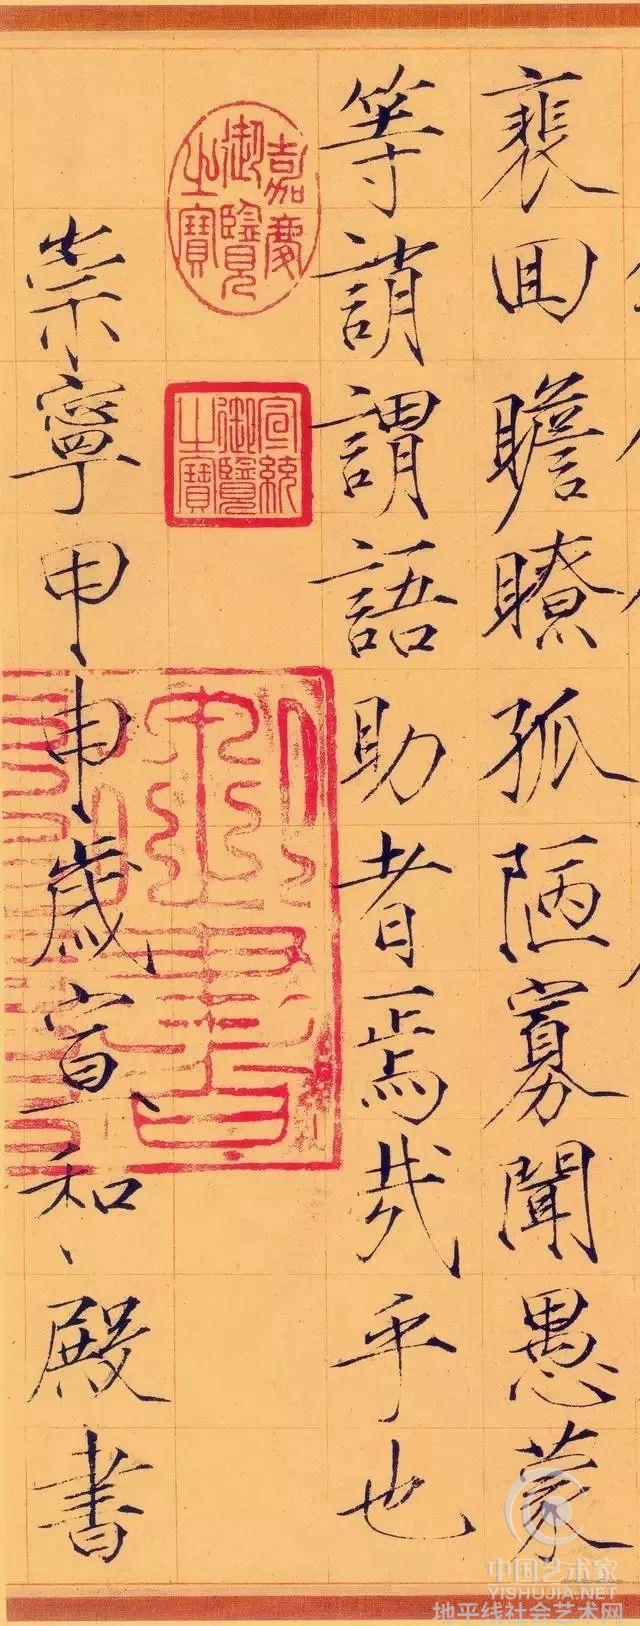 裵回瞻瞭孤陋寡聞愚蒙
等誚謂語助者焉哉乎也
嘉慶御覽之寶
宣統御覽之寶
崇寧甲申歲宣和殿書
中国艺术家
YISHUJIA.NET
地平线社会艺术网